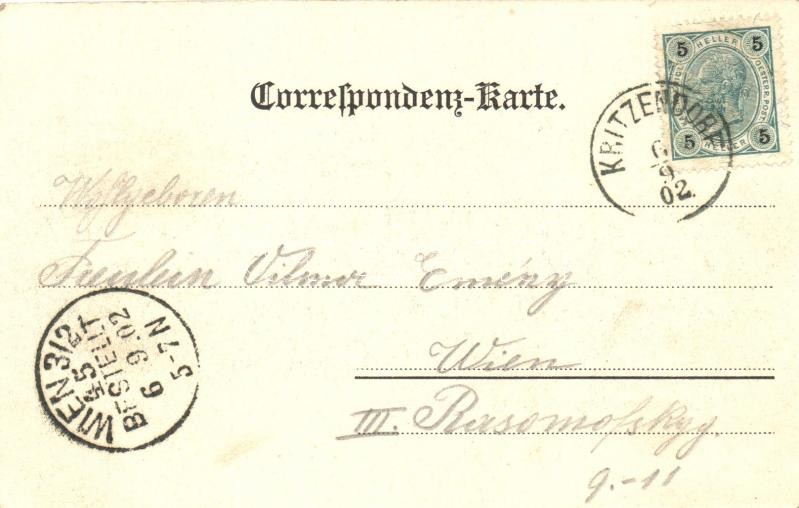 5 HELLER 5
OESTERR.POST
5 HELLER 5
Correspondenz-Karte.
KRITZENDORF
6
9
02
Fräulein Vilma
Wien
III. Rasomofskyg.
9.-11
WIEN 3/2
BESTELLT
6 9.02
5-7 N